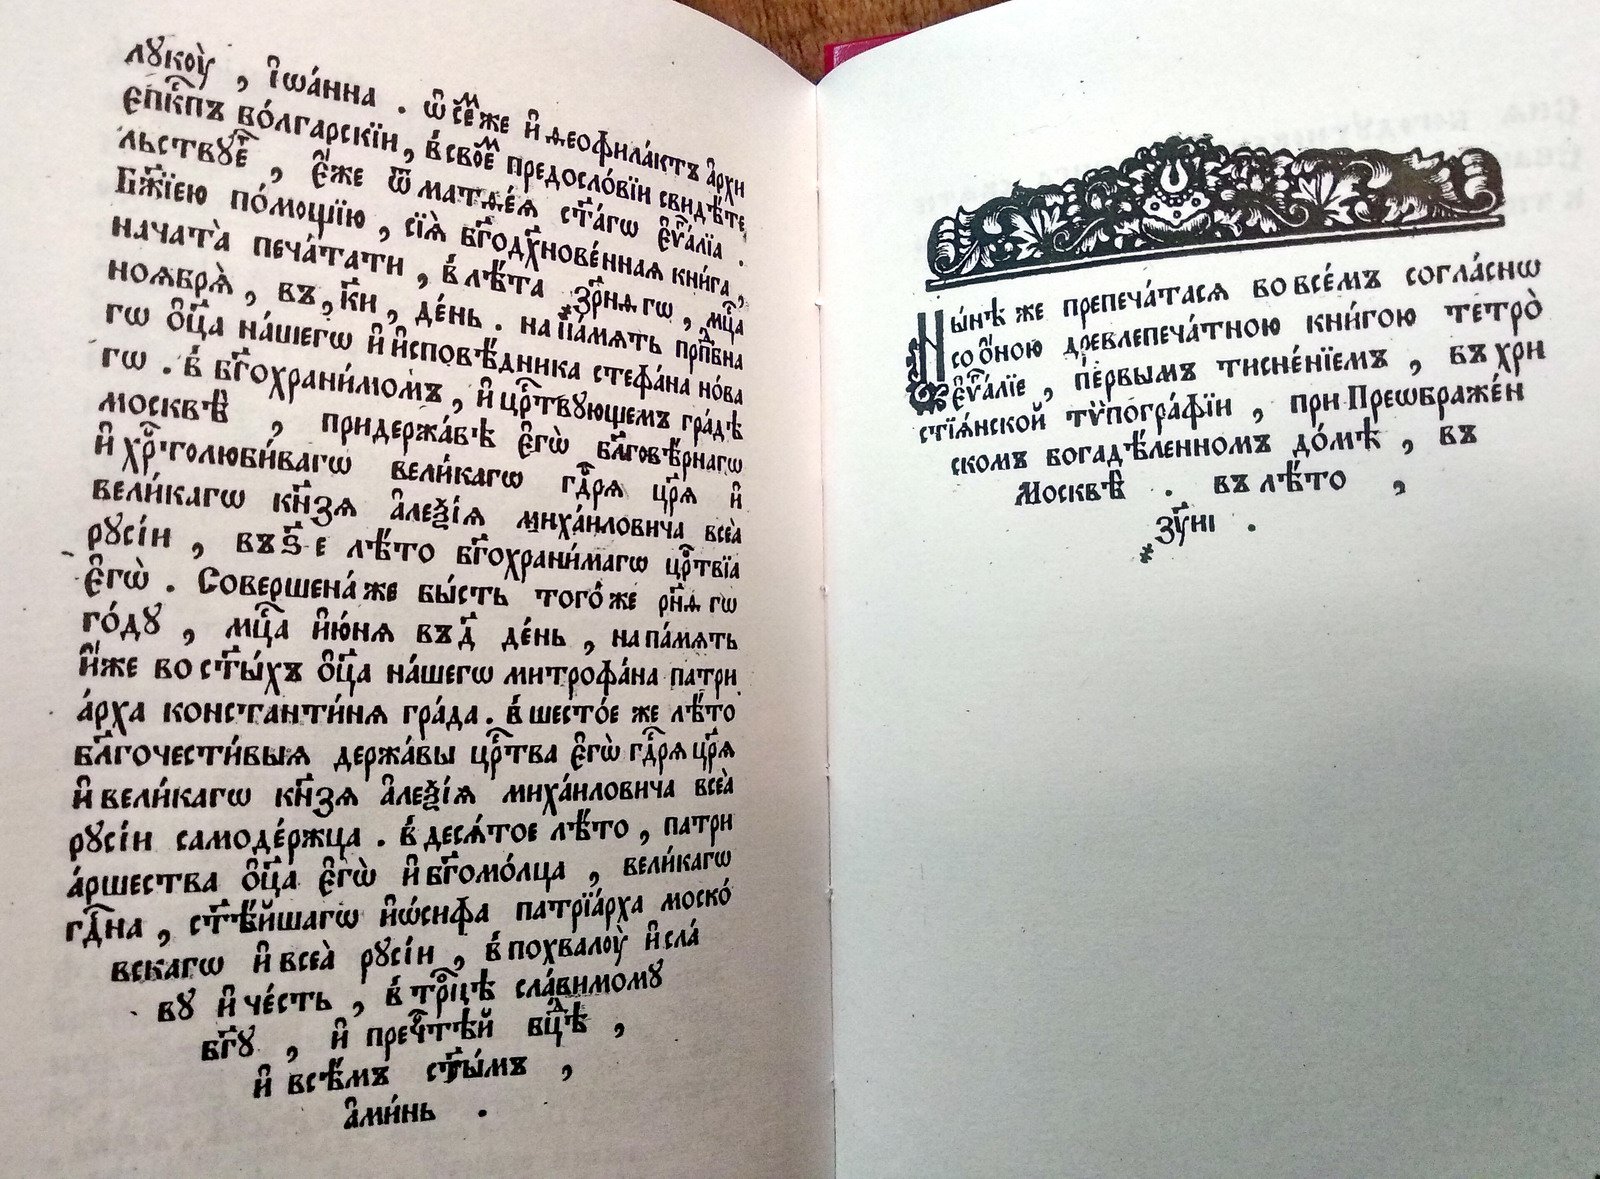 лꙋкоꙋ̀ , і҆ѡа́нна . ѡ҆ се́мже и҆ ѳеофила́ктъ а҆рхи
є҆пⷭ҇кпъ во́лгарскїи , в̾ свое́м предосло́вїи свидѣ́те
льствꙋетъ , є҆́же ѿ матѳе́ѧ ст҃а́гѡ є҆ѵⷢ҇алїа .
Бж҃їею по́мощїю , сїѧ̀ бг҃одх҃нове́ннаѧ кни́га ,
начата̀ печа́тати , в̾ лѣ́та ҂зр҃нѧгѡ , мцⷭ҇а
ноѧбрѧ̀ , въ , к҃и , де́нь . на па́мѧть прпⷣбна
гѡ ѻ҆ц҃а на́шегѡ и҆ и҆сповѣ́дника стефа́на но́ва
гѡ . в̾ бг҃охрани́момъ , и҆ црⷭ҇твꙋющемъ гра́дѣ
москвѣ̀ , придержа́вѣ є҆гѡ̀ бл҃говѣ́рнагѡ
и҆ хрⷭ҇толюби́вагѡ вели́кагѡ гдⷭ҇рѧ цр҃ѧ и҆
вели́кагѡ кн҃зѧ а҆леѯі́ѧ миха́иловича всеѧ̀
рꙋсі́и , въ ѕ҃ е лѣ́то бг҃охрани́магѡ црⷭ҇твїа
є҆гѡ̀ . Соверше́на же бы́сть того́же рн҃ѧ гѡ
го́дꙋ , мцⷭ҇а и҆ю́нѧ въ д҃ де́нь , на па́мѧть
и҆́же во ст҃ы́хъ ѻ҆ц҃а на́шегѡ митрофа́на патри
а́рха константи́нѧ гра́да . в̾ шесто́е же лѣ́то
бл҃гочести́выѧ держа́вы црⷭ҇тва є҆гѡ̀ гдⷭ҇рѧ цр҃ѧ
и҆ вели́кагѡ кн҃зѧ а҆леѯі́ѧ миха́иловича всеа̀
рꙋсі́и самоде́ржца . в̾ десѧ́тое лѣ́то , патри
а́ршества ѻ҆ц҃а є҆гѡ̀ и҆ бг҃омо́лца , вели́кагѡ
гдⷭ҇на , ст҃ѣ́йшагѡ и҆ѡ́сифа патрїа́рха моско́
вскагѡ и҆ всеа̀ рꙋсі́и , в̾ похвалоꙋ̀ и҆ сла́
вꙋ и҆ че́сть , в̾ трⷪ҇цѣ сла́вимомꙋ
бг҃ꙋ , и҆ пречⷭ҇тѣй бцⷣѣ ,
и҆ всѣ́мъ ст҃ы́мъ ,
а҆ми́нь .
Ны́нѣ же препеча́тасѧ во все́мъ согла́снѡ
со ѻ҆́ною древлепеча́тною кни́гою тетро̀
є҆ѵⷢ҇а́лїе , пе́рвымъ тисне́нїемъ , въ хри
стїѧ́нской тѷпогра́фїи , при Преѡбраже́н
скомъ богадѣ́ленномъ до́мѣ , въ
Москвѣ̀ . въ лѣ́то ,
҂зꙋ҃иі .